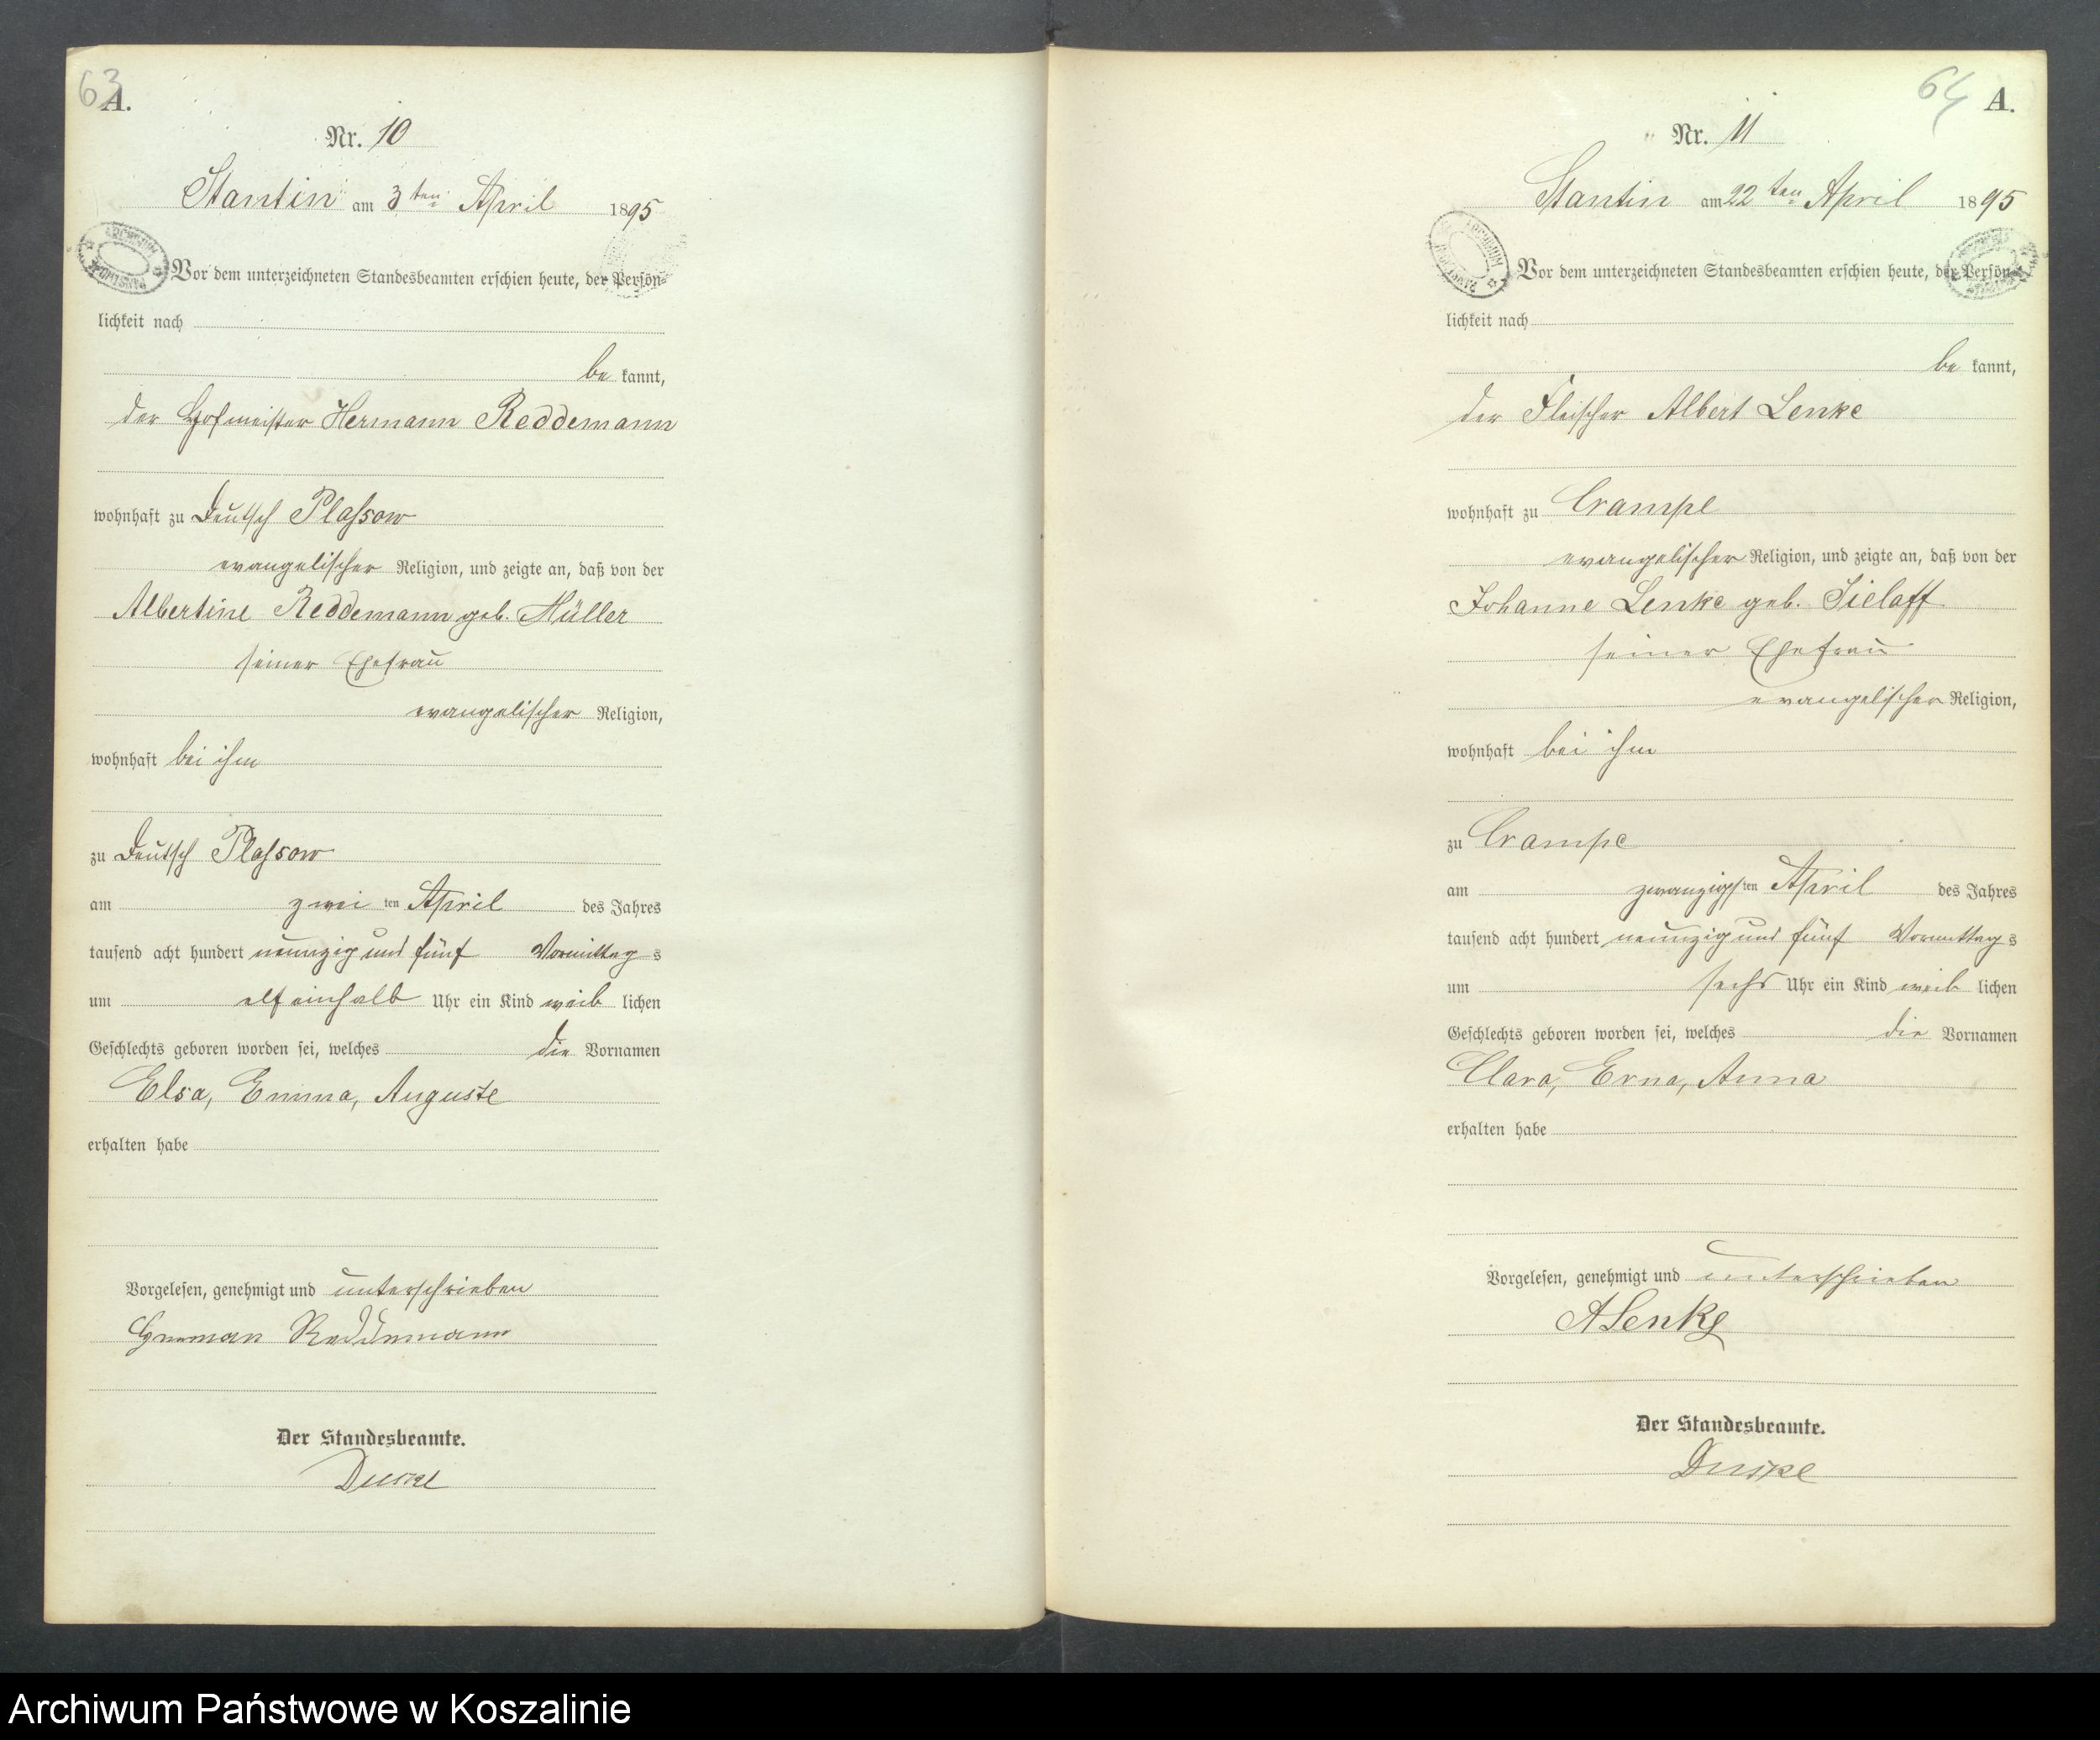 63
A.
Nr. 10
Stantin am 3ten April 1895
Vor dem unterzeichneten Standesbeamten erschien heute, der Persön-
lichkeit nach
be kannt,
der Hofmeister Hermann Reddemann
wohnhaft zu Deutsch Plassow
evangelischer Religion, und zeigte an, daß von der
Albertine Reddemann geb. Müller
seiner Ehefrau
evangelischer Religion,
wohnhaft bei ihm
zu Deutsch Plassow
am zwei ten April des Jahres
tausend acht hundert neunzig und fünf Vormittag s
um elfeinhalb Uhr ein Kind weib lichen
Geschlechts geboren worden sei, welches die Vornamen
Elsa, Emma, Auguste
erhalten habe
Vorgelesen, genehmigt und unterschrieben
Herman Reddemann
Der Standesbeamte.
64
A.
Nr. 11
Stantin am 22ten April 1895
Vor dem unterzeichneten Standesbeamten erschien heute, der Persön-
lichkeit nach
be kannt,
der Fleischer Albert Lenke
wohnhaft zu Crampe
evangelischer Religion, und zeigte an, daß von der
Johanne Lenke geb. Sielaff
seiner Ehefrau
evangelischer Religion,
wohnhaft bei ihm
zu Crampe
am zwanzigsten April des Jahres
tausend acht hundert neunzig und fünf Vormittag s
um sechs Uhr ein Kind weib lichen
Geschlechts geboren worden sei, welches die Vornamen
Clara, Erna, Anna
erhalten habe
Vorgelesen, genehmigt und unterschrieben
A Lenke
Der Standesbeamte.
Archiwum Państwowe w Koszalinie